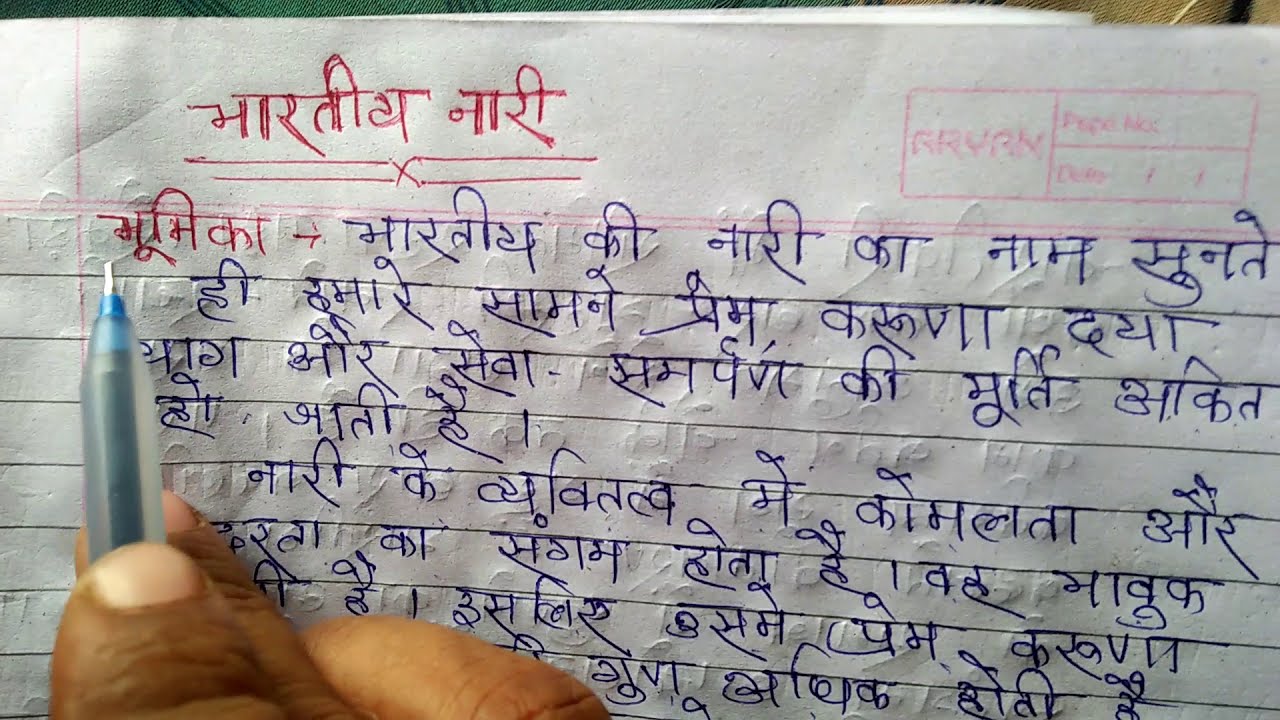 भारतीय नारी
Page No.
Date / /
भूमिका → भारतीय की नारी का नाम सुनते
ही हमारे सामने प्रेम, करूणा दया
और सेवा - समर्पण की मूर्ति अकित
हो जाती है ।
नारी के व्यवितत्व में कोमलता और
का संगम होता है । वह भावुक
है । इसलिए उसमे प्रेम, करूणा
गुण अधिक होती है